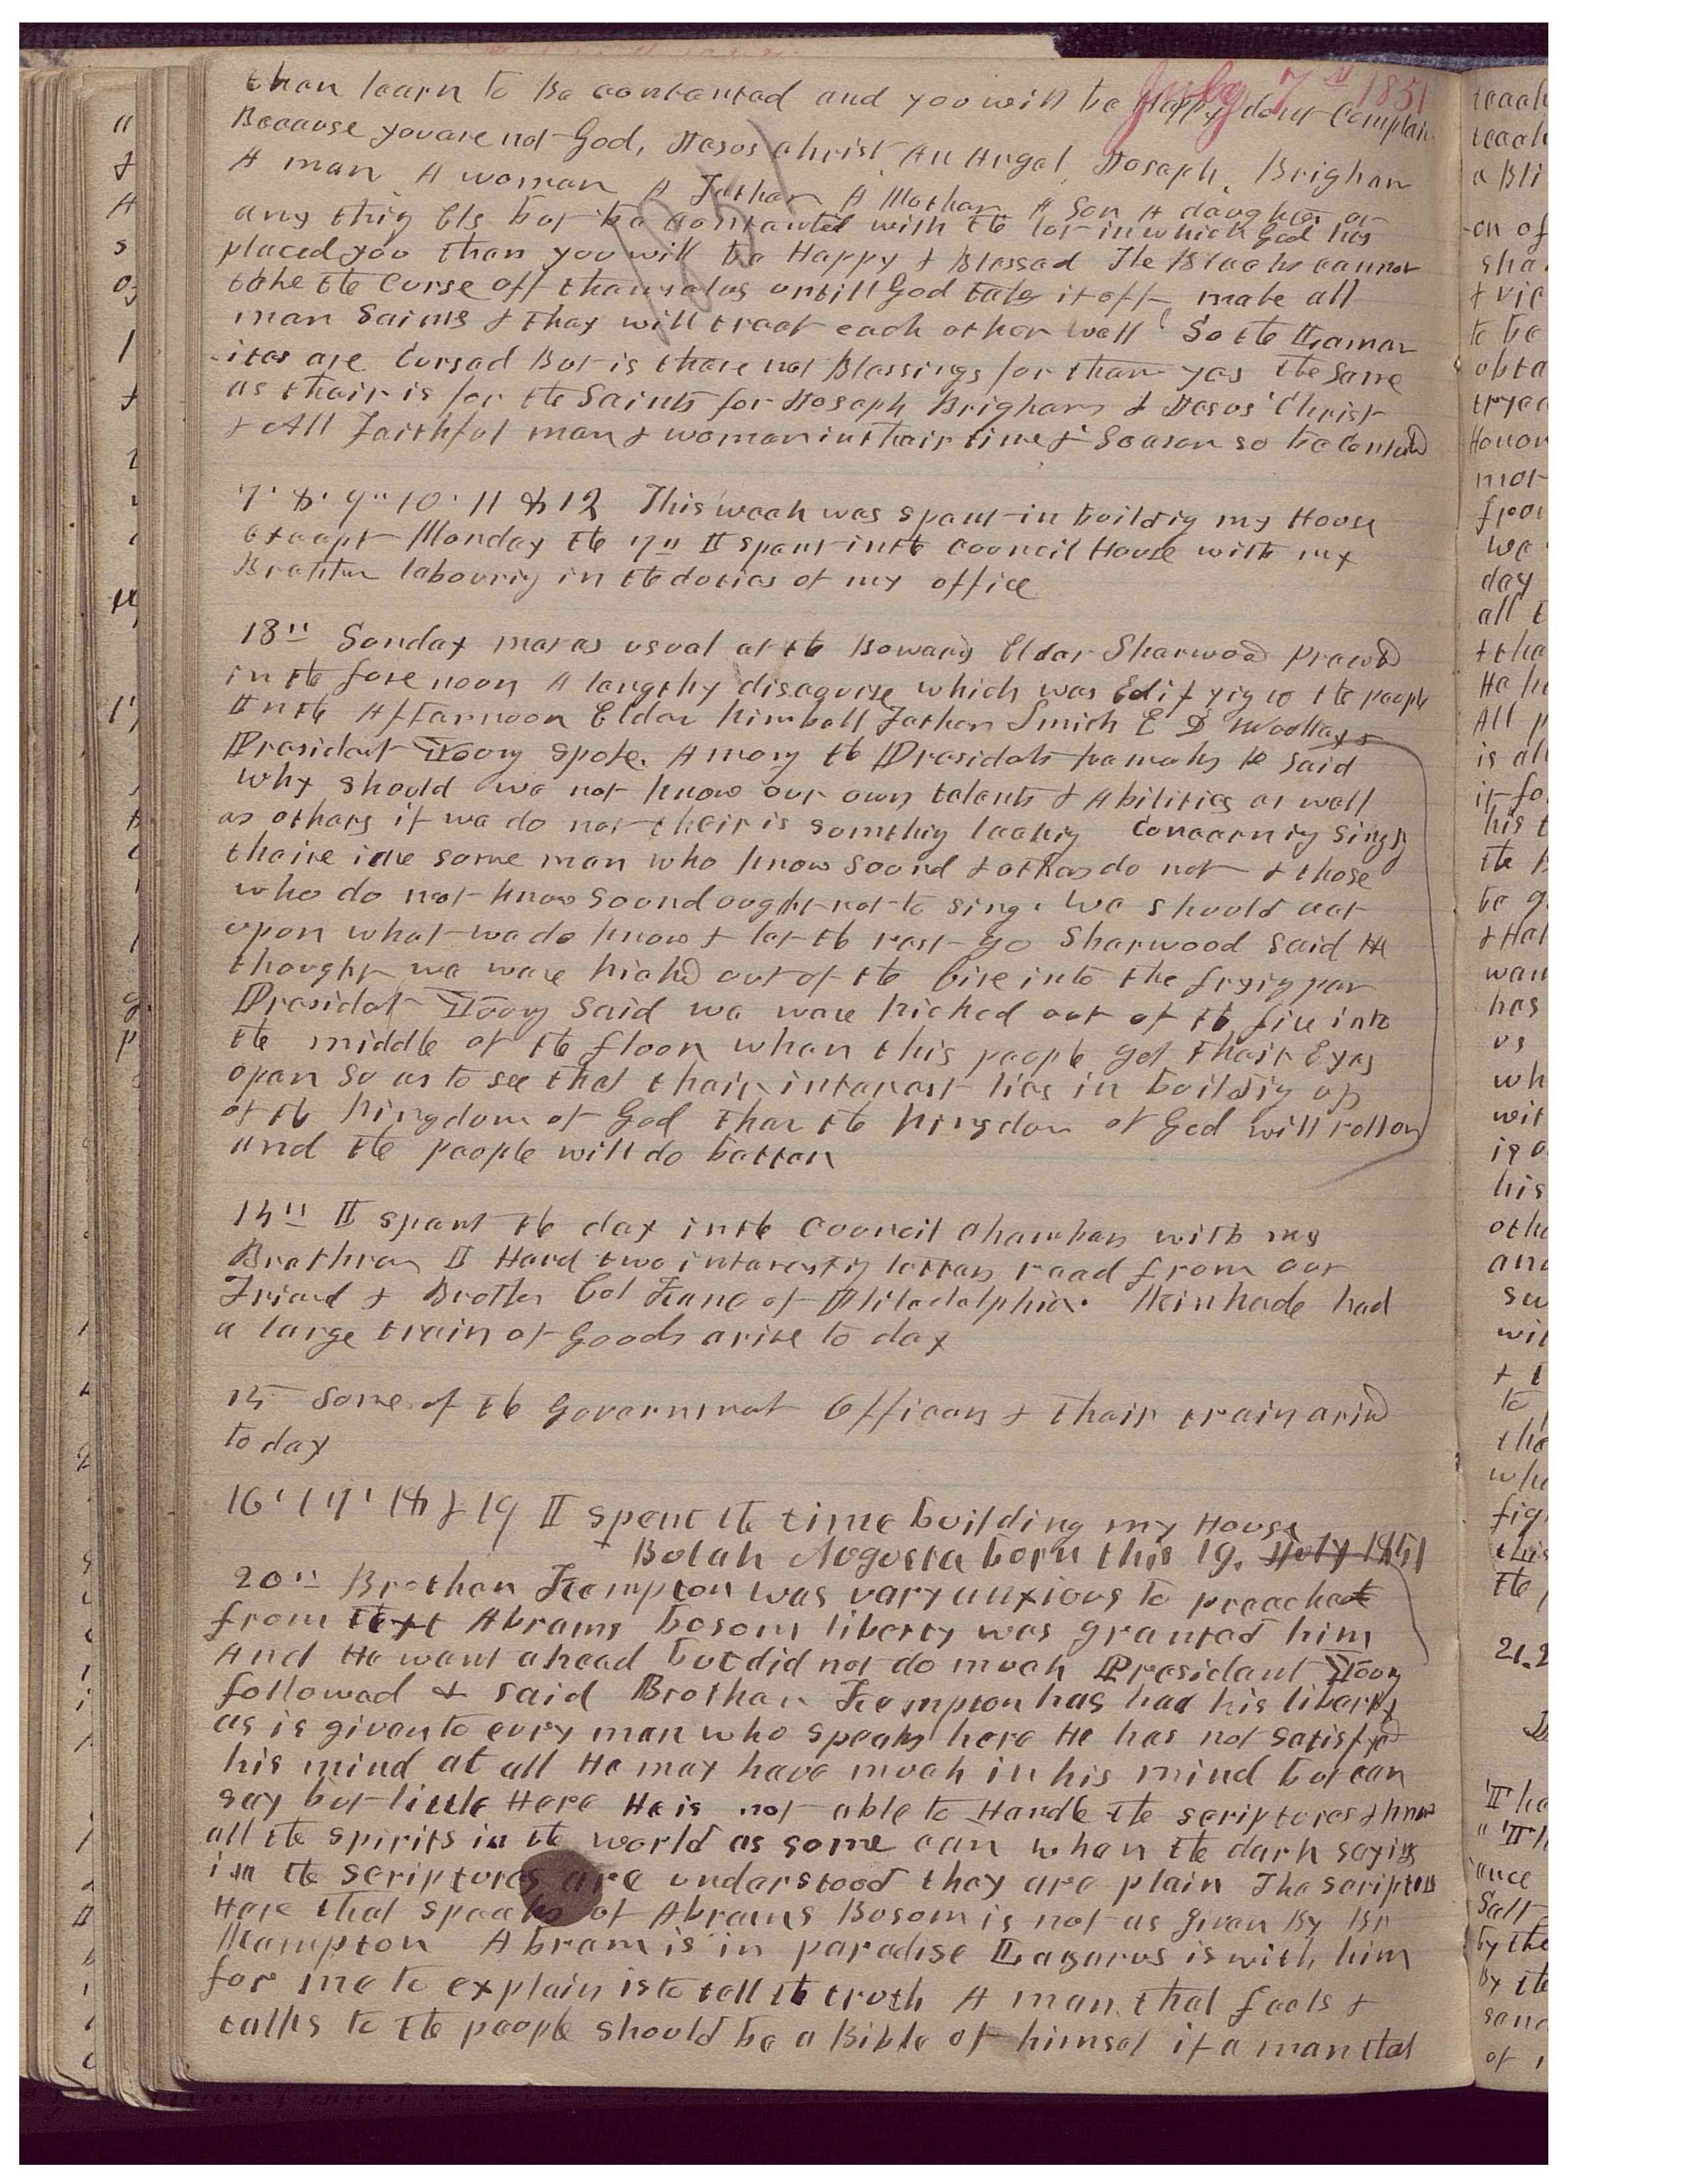 July 7th 1851
then learn to Be contented and you will be Happy dont complain
Because you are not God, Jesus Christ An Angel, Joseph, Brigham
A man A woman A Father A Mother A Son A daughter or
any thig Els but be contented with the lot in which God has
placed you then you will be Happy & Blessed The Blacks cannot
take the Curse off themselves untill God takes it off, make all
men Saints & they will treat each other well So the Laman
ites are Cursed But is there not Blessings for them yes the same
as their is for the Saints for Joseph Brigham & Jesus Christ
& All Faithful men & women in their time & Season so be contented
7. 8. 9" 10. 11 & 12 This week was spent in buildig my House
except Monday the 7" I spent in the Council House with my
Brethren labourig in the duties of my office
13" Sunday met as usual at the Bowery Elder Sherwood preached
in the fore noon A lengthy discourse which was Edifyig to the people
In the Afternoon Elder Kimball Father Smith E D Woolley &
President Young spoke. Among the Presidets remarks he said
why should we not know our own talents & Abilities as well
as others if we do not their is somthig lackig Concernig singig
theire are some men who know sound & others do not & those
who do not know sound ought not to sing. We should act
upon what we do know & let the rest go Sherwood said He
thought we ware kicked out of the fire into the fryig pan
Presidet Young said we ware kicked out of the fire into
the middle of the floor when this people get their Eyes
open so as to see that their interest lies in buildig up
of the Kingdom of God then the Kingdom of God will roll on
and the people will do better
14" I spent the day in the Council Chamber with my
Brethren I Hard two interestig letters read from our
Friend & Brother Col Kane of Philadelphia. Keinkade had
a large train of Goods arive to day
15 Some of the Government Officers & their train arived
to day
16. 17. 18 & 19 I spent the time building my House
Bulah Augusta born this 19. July 1851
20" Brother Kempton was very anxious to preach
from text Abrams bosom liberty was granted him
And He went ahead but did not do much President Young
followed & said Brother Kempton has had his liberty
as is given to evry man who speaks here He has not satisfyed
his mind at all He may have much in his mind but can
say but little Here He is not able to Handle the scriptures & know
all the spirits in the world as some can when the dark sayigs
in the scriptures are understood they are plain The scriptures
Here that speaks of Abrams Bosom is not as given By Br
Kempton Abram is in paradise Lazarus is with him
for me to explain is to tell the truth A man that feels &
talks to the people should be a Bible of himself if a man that